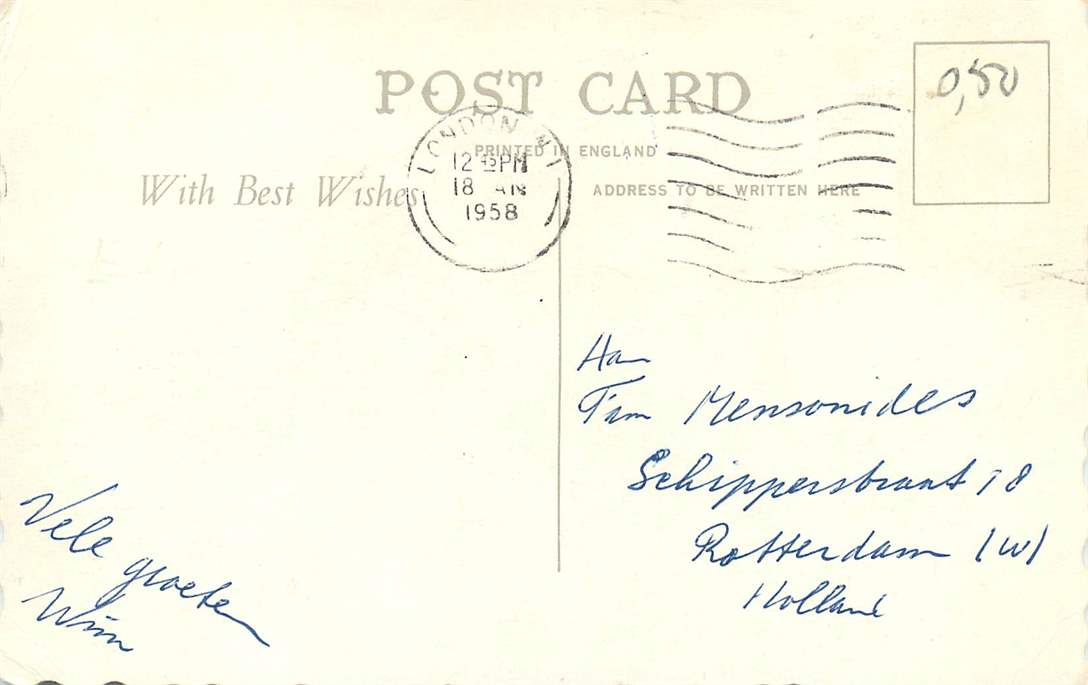 POST CARD
PRINTED IN ENGLAND
With Best Wishes
ADDRESS TO BE WRITTEN HERE
LONDON N1
12 15 PM
18 JAN
1958
0,50
Aan
Fam Mensonides
Schipperstraat 18
Rotterdam (W)
Holland
Vele groeten
Wim